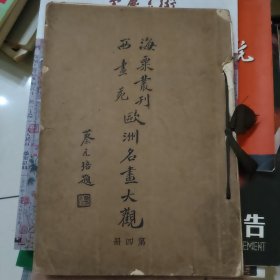 海粟叢刊
西畫苑歐洲名畫大觀
蔡元培題
第四册
告